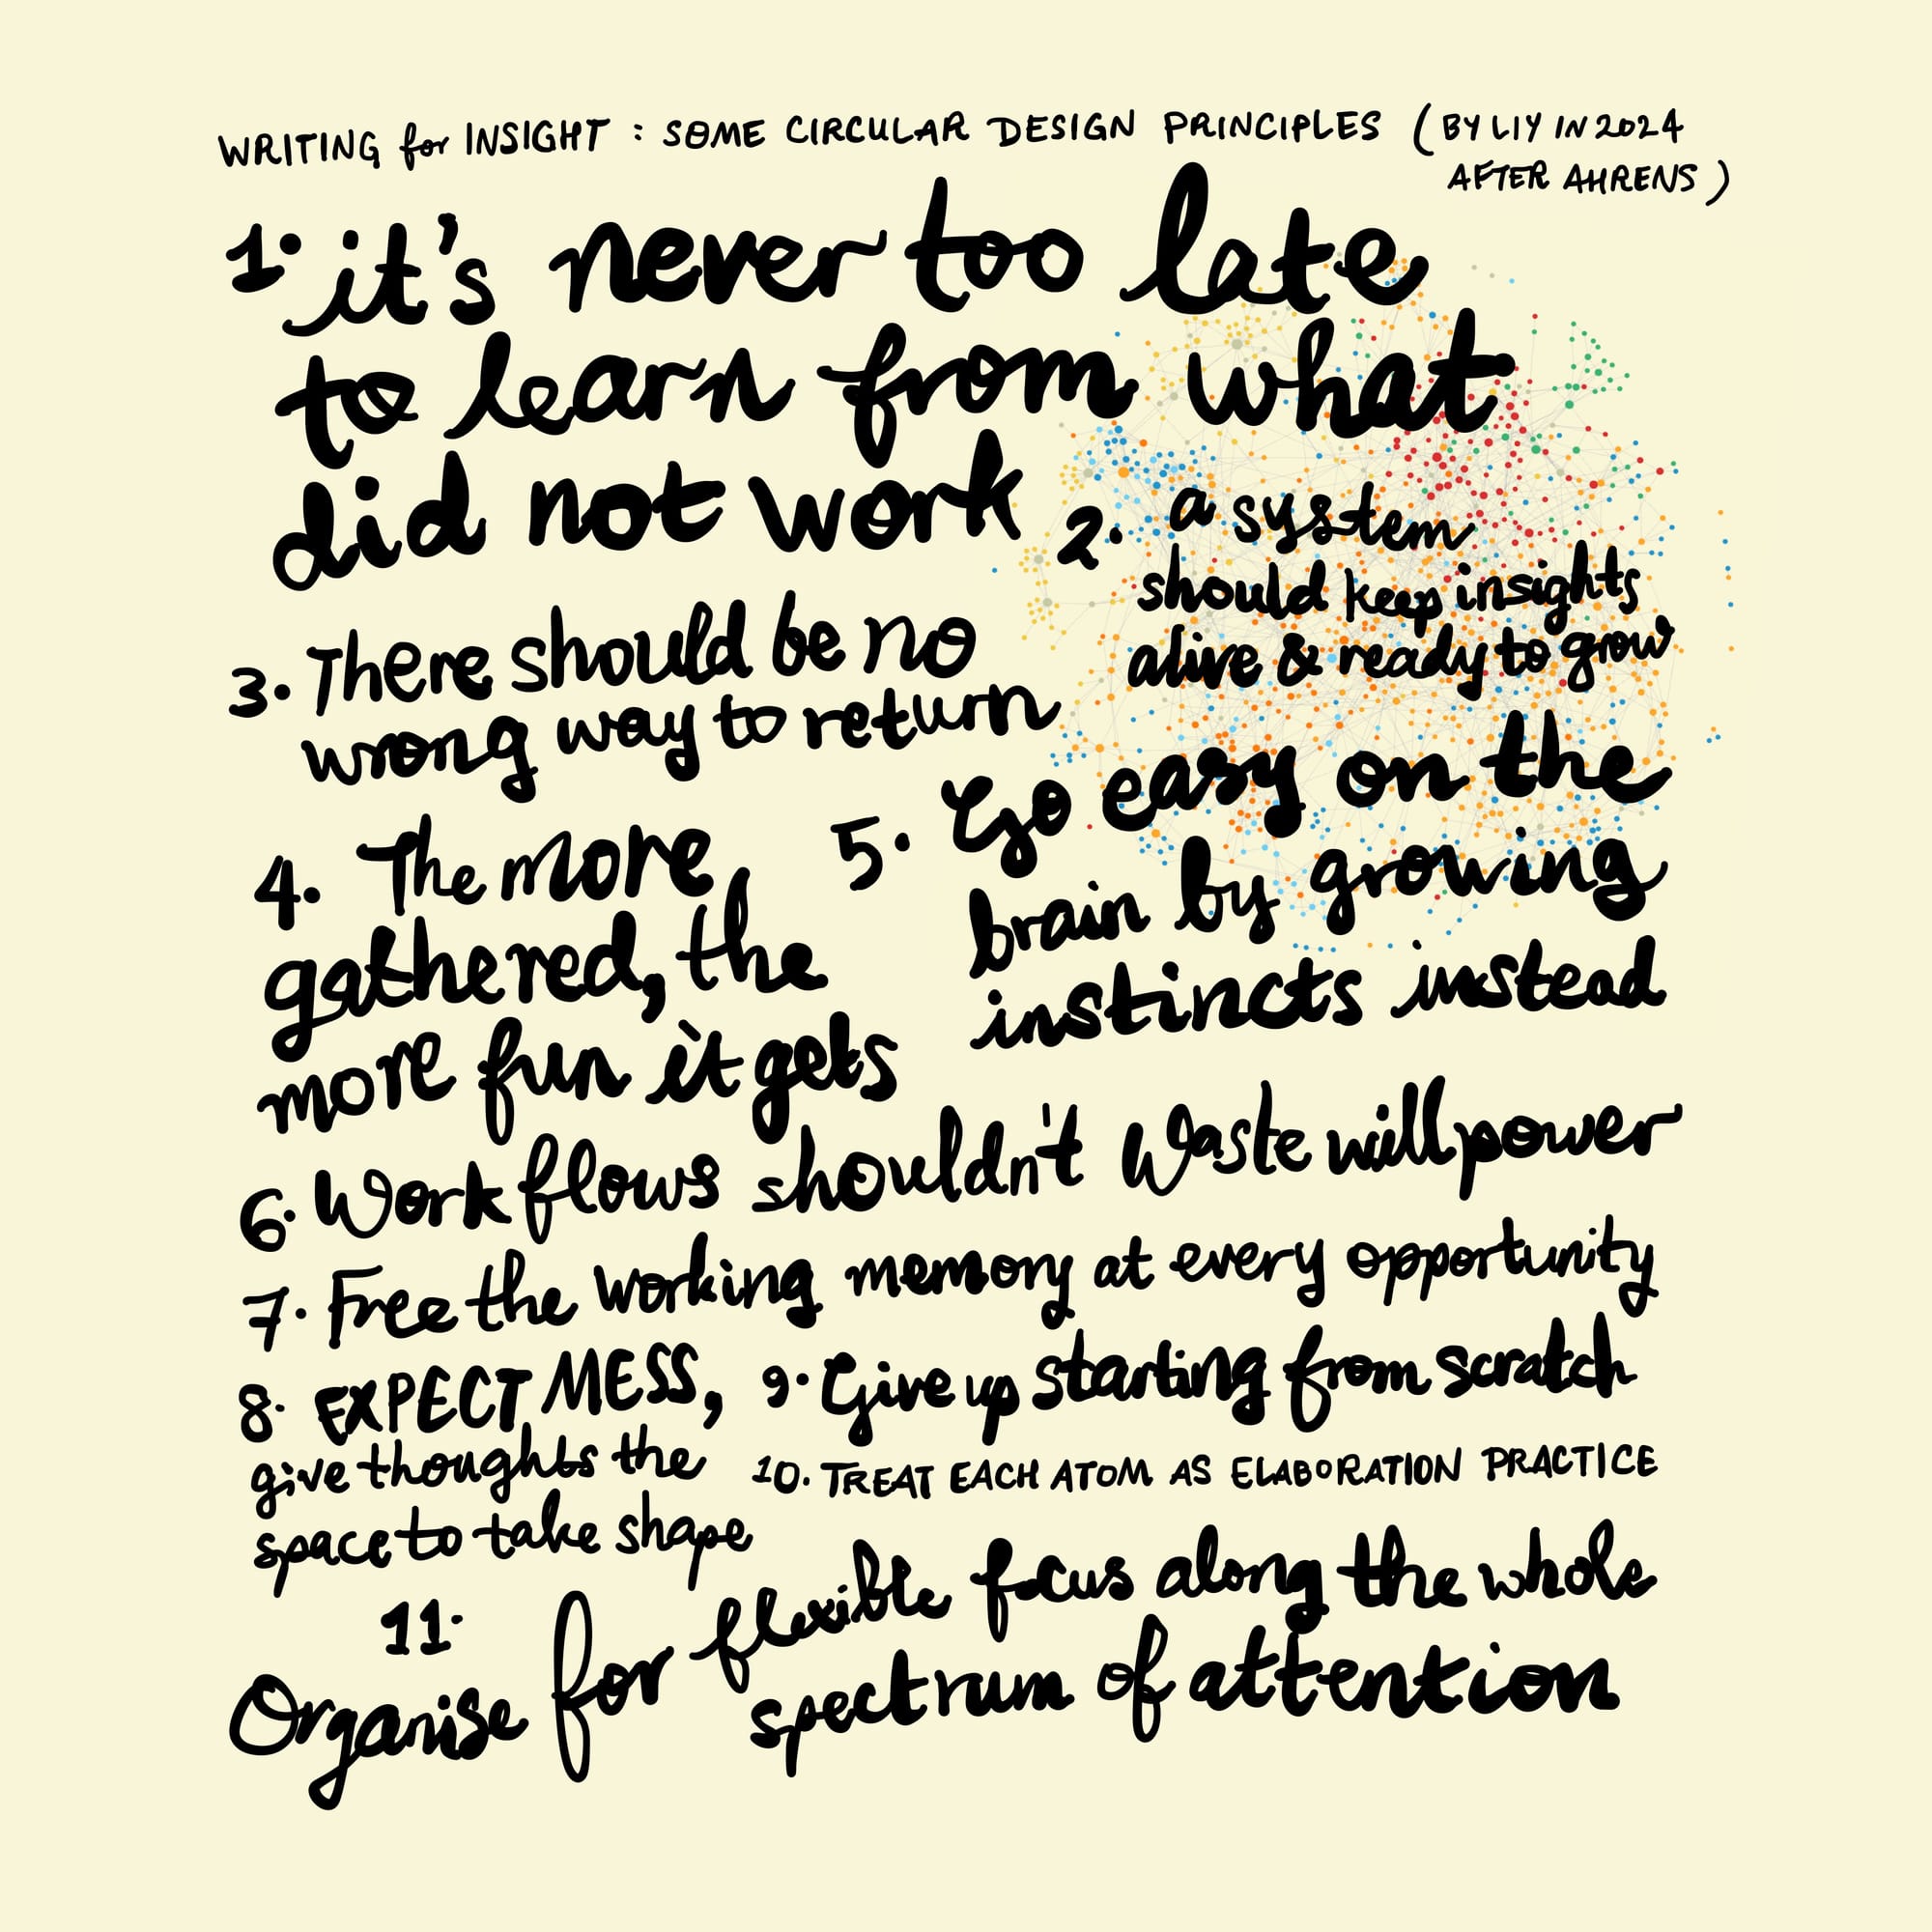 WRITING for INSIGHT : SOME CIRCULAR DESIGN PRINCIPLES (BY LIY IN 2024
AFTER AHRENS)
1. it's never too late
to learn from what
did not work
2. a system
should keep insights
alive & ready to grow
3. There should be no
wrong way to return
4. The more
gathered, the
more fun it gets
5. Go easy on the
brain by growing
instincts instead
6. Workflows shouldn't waste willpower
7. Free the working memory at every opportunity
8. EXPECT MESS,
give thoughts the
space to take shape
9. Give up starting from scratch
10. TREAT EACH ATOM AS ELABORATION PRACTICE
11.
Organise for flexible focus along the whole
spectrum of attention